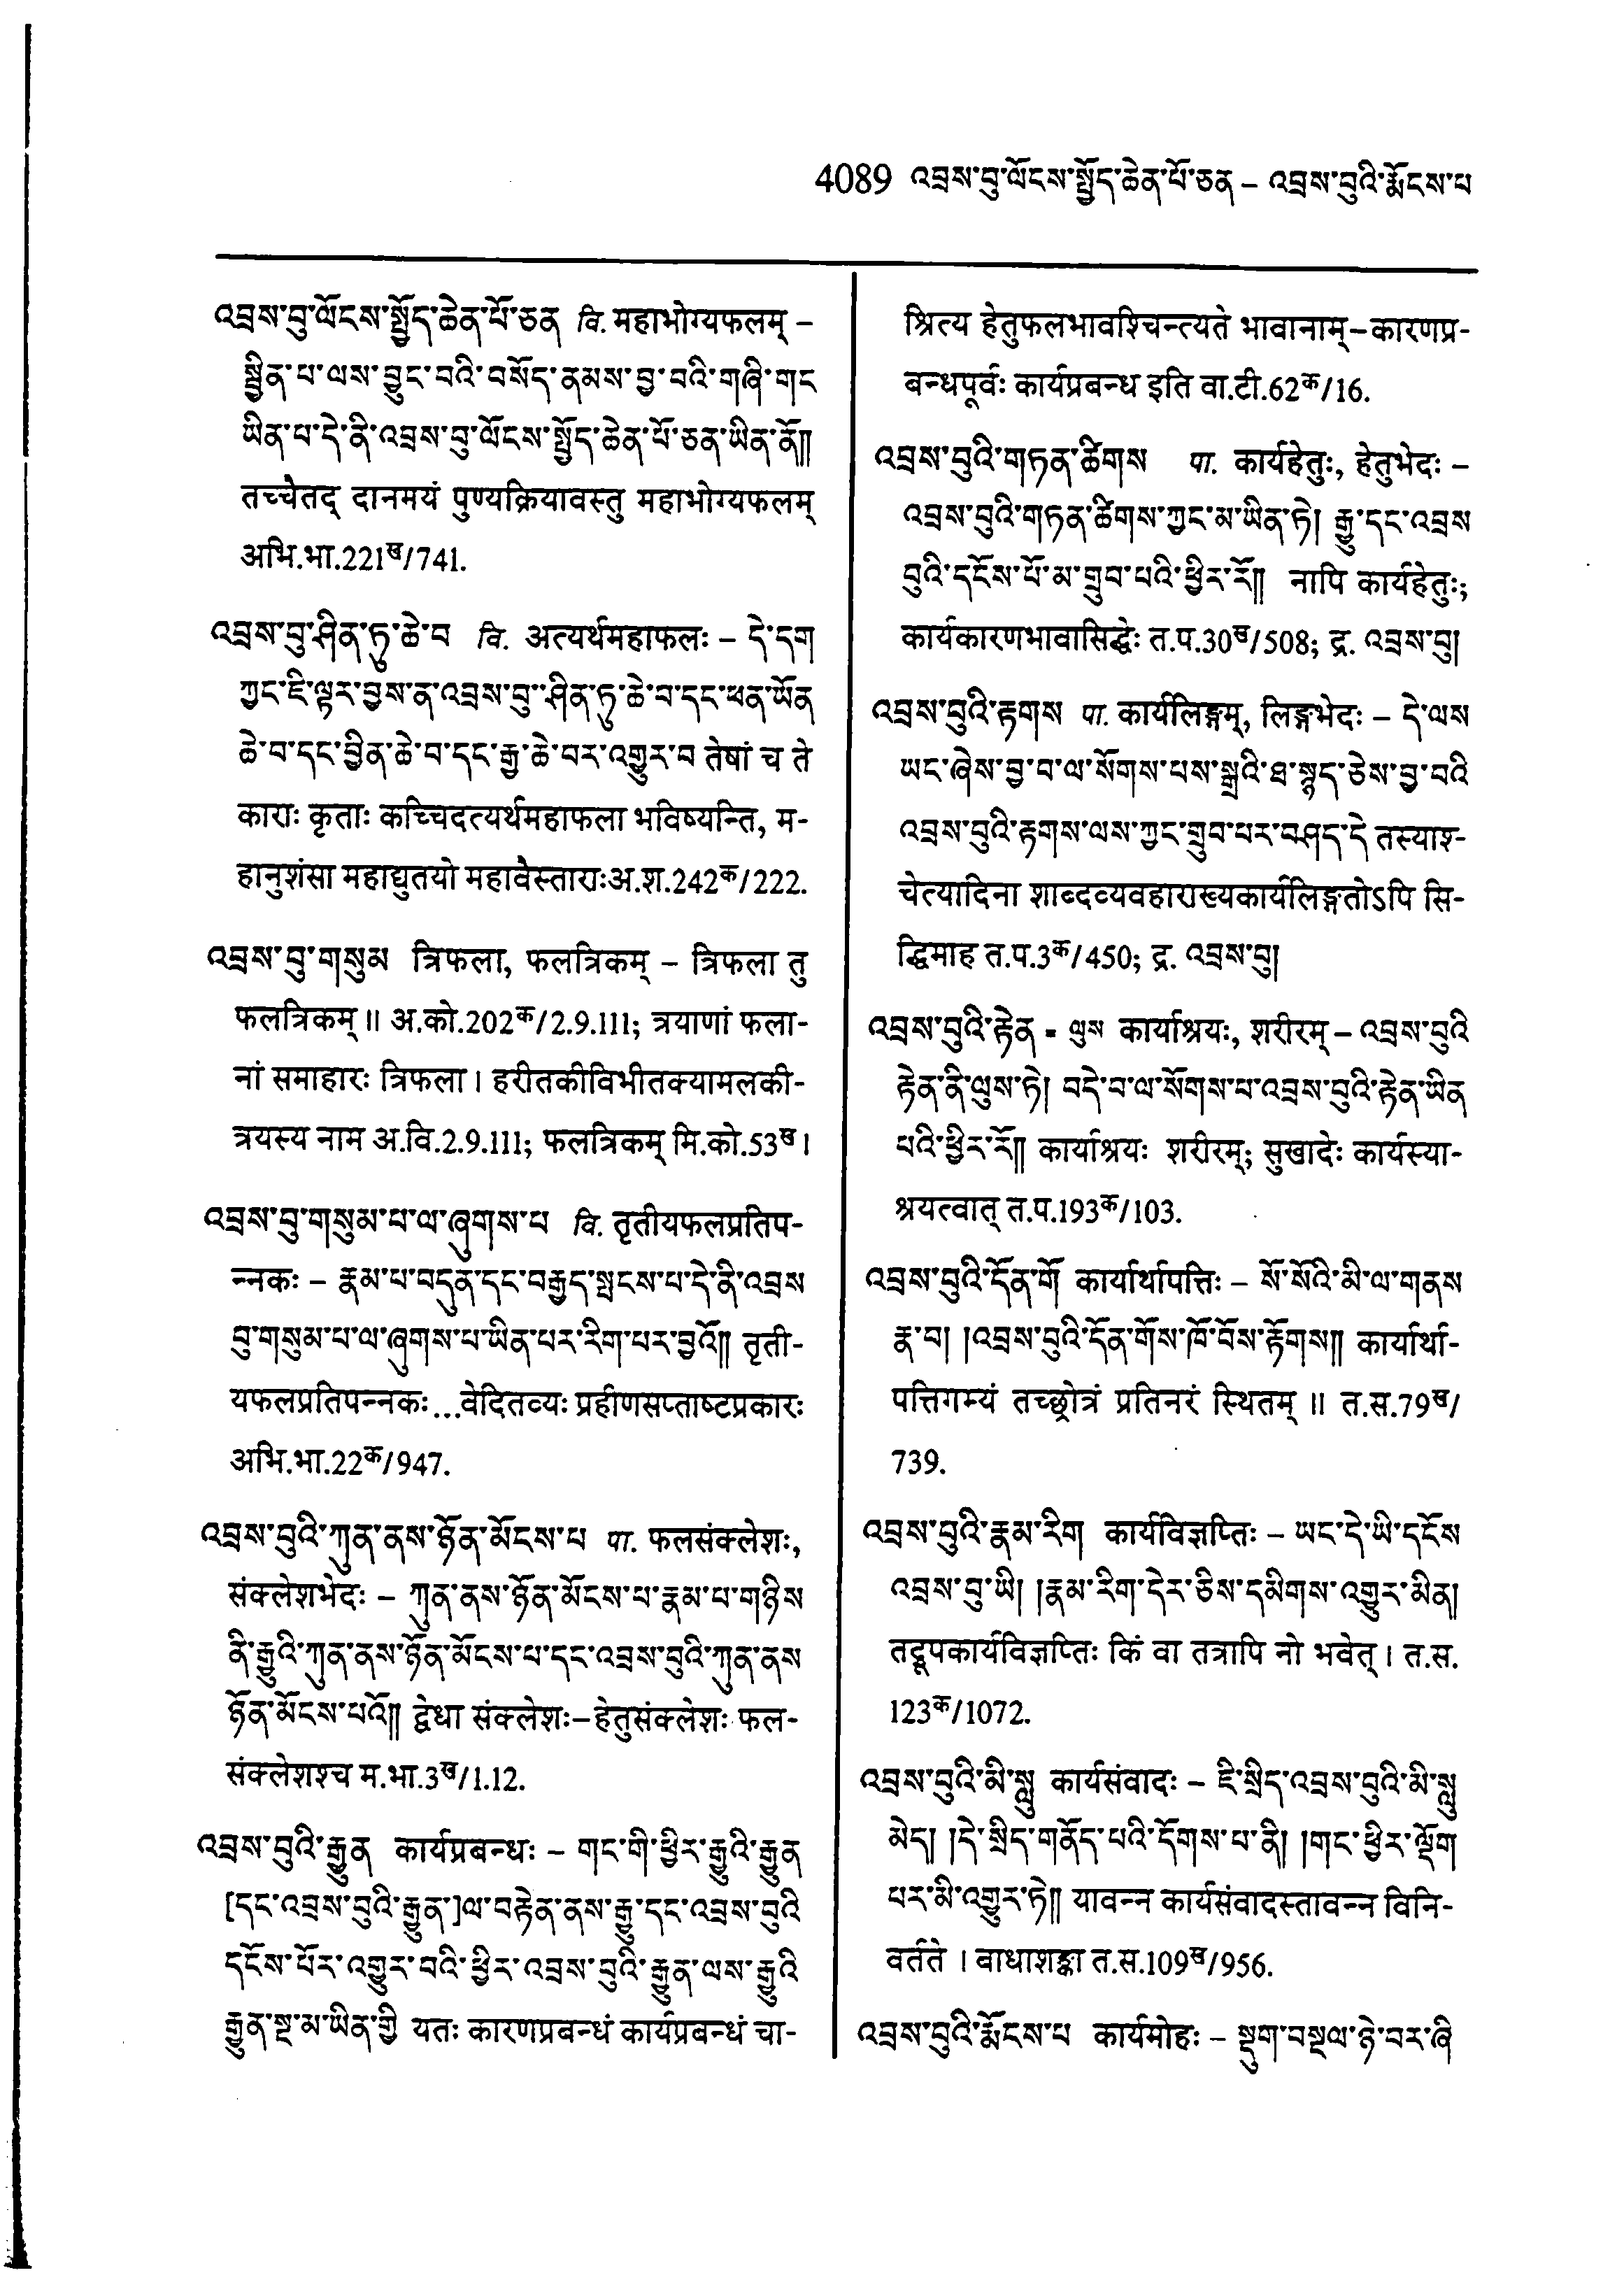 4089 འབྲས་བུ་ལོངས་སྤྱོད་ཆེན་པོ་ཅན – འབྲས་བུའི་རྨོངས་པ
འབྲས་བུ་ལོངས་སྤྱོད་ཆེན་པོ་ཅན वि. महाभोग्यफलम् –
སྦྱིན་པ་ལས་བྱུང་བའི་བསོད་ནམས་བྱ་བའི་གཞི་གང
ཡིན་པ་དེ་ནི་འབྲས་བུ་ལོངས་སྤྱོད་ཆེན་པོ་ཅན་ཡིན་ནོ༎
तच्चैतद् दानमयं पुण्यक्रियावस्तु महाभोग्यफलम्
अभि.भा.221ख/741.
འབྲས་བུ་ཤིན་ཏུ་ཆེ་བ वि. अत्यर्थमहाफलः – དེ་དག
ཀྱང་ཇི་ལྟར་བྱས་ན་འབྲས་བུ་ཤིན་ཏུ་ཆེ་བ་དང་ཕན་ཡོན
ཆེ་བ་དང་བྱིན་ཆེ་བ་དང་རྒྱ་ཆེ་བར་འགྱུར་བ तेषां च ते
काराः कृताः कच्चिदत्यर्थमहाफला भविष्यन्ति, म-
हानुशंसा महाद्युतयो महावैस्ताराःअ.श.242क/222.
འབྲས་བུ་གསུམ त्रिफला, फलत्रिकम् – त्रिफला तु
फलत्रिकम् ॥ अ.को.202क/2.9.111; त्रयाणां फला-
नां समाहारः त्रिफला । हरीतकीविभीतक्यामलकी-
त्रयस्य नाम अ.वि.2.9.111; फलत्रिकम् मि.को.53ख ।
འབྲས་བུ་གསུམ་པ་ལ་ཞུགས་པ वि. तृतीयफलप्रतिप-
न्नकः – རྣམ་པ་བདུན་དང་བརྒྱད་སྤངས་པ་དེ་ནི་འབྲས
བུ་གསུམ་པ་ལ་ཞུགས་པ་ཡིན་པར་རིག་པར་བྱའོ༎ तृती-
यफलप्रतिपन्नकः...वेदितव्यः प्रहीणसप्ताष्टप्रकारः
अभि.भा.22क/947.
འབྲས་བུའི་ཀུན་ནས་ཉོན་མོངས་པ पा. फलसंक्लेशः,
संक्लेशभेदः – ཀུན་ནས་ཉོན་མོངས་པ་རྣམ་པ་གཉིས
ནི་རྒྱུའི་ཀུན་ནས་ཉོན་མོངས་པ་དང་འབྲས་བུའི་ཀུན་ནས
ཉོན་མོངས་པའོ༎ द्वेधा संक्लेशः–हेतुसंक्लेशः फल-
संक्लेशश्च म.भा.3ख/1.12.
འབྲས་བུའི་རྒྱུན कार्यप्रबन्धः – གང་གི་ཕྱིར་རྒྱུའི་རྒྱུན
[དང་འབྲས་བུའི་རྒྱུན་]ལ་བརྟེན་ནས་རྒྱུ་དང་འབྲས་བུའི
དངོས་པོར་འགྱུར་བའི་ཕྱིར་འབྲས་བུའི་རྒྱུན་ལས་རྒྱུའི
རྒྱུན་སྔ་མ་ཡིན་གྱི यतः कारणप्रबन्धं कार्यप्रबन्धं चा-
श्रित्य हेतुफलभावश्चिन्त्यते भावानाम्–कारणप्र-
बन्धपूर्वः कार्यप्रबन्ध इति वा.टी.62क/16.
འབྲས་བུའི་གཏན་ཚིགས पा. कार्यहेतुः, हेतुभेदः –
འབྲས་བུའི་གཏན་ཚིགས་ཀྱང་མ་ཡིན་ཏེ། རྒྱུ་དང་འབྲས
བུའི་དངོས་པོ་མ་གྲུབ་པའི་ཕྱིར་རོ༎ नापि कार्यहेतुः;
कार्यकारणभावासिद्धेः त.प.30ख/508; द्र. འབྲས་བུ།
འབྲས་བུའི་རྟགས पा. कार्यलिङ्गम्, लिङ्गभेदः – དེ་ལས
ཡང་ཞེས་བྱ་བ་ལ་སོགས་པས་སྒྲའི་ཐ་སྙད་ཅེས་བྱ་བའི
འབྲས་བུའི་རྟགས་ལས་ཀྱང་གྲུབ་པར་བཤད་དེ तस्याश्-
चेत्यादिना शाब्दव्यवहाराख्यकार्यलिङ्गतोऽपि सि-
द्धिमाह त.प.3क/450; द्र. འབྲས་བུ།
འབྲས་བུའི་རྟེན = ལུས कार्याश्रयः, शरीरम् – འབྲས་བུའི
རྟེན་ནི་ལུས་ཏེ། བདེ་བ་ལ་སོགས་པ་འབྲས་བུའི་རྟེན་ཡིན
པའི་ཕྱིར་རོ༎ कार्याश्रयः शरीरम्; सुखादेः कार्यस्या-
श्रयत्वात् त.प.193क/103.
འབྲས་བུའི་དོན་གོ कार्यार्थापत्तिः – སོ་སོའི་མི་ལ་གནས
རྣ་བ། །འབྲས་བུའི་དོན་གོས་ཁོ་བོས་རྟོགས༎ कार्यार्था-
पत्तिगम्यं तच्छ्रोत्रं प्रतिनरं स्थितम् ॥ त.स.79ख/
739.
འབྲས་བུའི་རྣམ་རིག कार्यविज्ञप्तिः – ཡང་དེ་ཡི་དངོས
འབྲས་བུ་ཡི། །རྣམ་རིག་དེར་ཅིས་དམིགས་འགྱུར་མིན།
तद्रूपकार्यविज्ञप्तिः किं वा तत्रापि नो भवेत् । त.स.
123क/1072.
འབྲས་བུའི་མི་སླུ कार्यसंवादः – ཇི་སྲིད་འབྲས་བུའི་མི་སླུ
མེད། །དེ་སྲིད་གནོད་པའི་དོགས་པ་ནི། །གང་ཕྱིར་ལྡོག
པར་མི་འགྱུར་ཏེ༎ यावन्न कार्यसंवादस्तावन्न विनि-
वर्तते । बाधाशङ्का त.स.109ख/956.
འབྲས་བུའི་རྨོངས་པ कार्यमोहः – སྡུག་བསྔལ་ཉེ་བར་ཞི